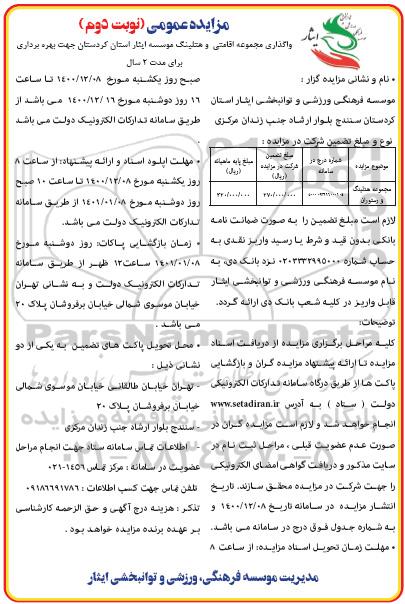 مزایده عمومی (نوبت دوم)
واگذاری مجموعه اقامتی و هتلینگ موسسه ایثار استان کردستان جهت بهره برداری
برای مدت ۲ سال
ایثار
• نام و نشانی مزایده گزار :
موسسه فرهنگی ورزشی و توانبخشی ایثار استان
کردستان سنندج بلوار ارشاد جنب زندان مرکزی
نوع و مبلغ تضمین شرکت در مزایده :
موضوع مزایده شماره درج در سامانه مبلغ تضمین شرکت در مزایده (ریال) مبلغ پایه ماهیانه (ریال)
مجموعه هتلینگ و رستوران ۲۷۰/۰۰۰/۰۰۰ ۲۲۰/۰۰۰/۰۰۰
لازم است مبلغ تضمین را به صورت ضمانت نامه
بانکی بدون قید و شرط یا رسید واریز نقدی به
حساب شماره ۰۲۰۳۳۳۲۹۹۵۰۰۰ نزد بانک دی، به
نام موسسه فرهنگی ورزشی و توانبخشی ایثار
قابل واریز در کلیه شعب بانک دی ارائه گردد.
توضیحات:
کلیه مراحل برگزاری مزایده از دریافت اسناد
مزایده تا ارائه پیشنهاد مزایده گران و بازگشایی
پاکت ها از طریق درگاه سامانه تدارکات الکترونیکی
دولت ( ستاد ) به آدرس www.setadiran.ir
انجام خواهد شد و لازم است مزایده گران در
صورت عدم عضویت قبلی ، مراحل ثبت نام در
سایت مذکور و دریافت گواهی امضای الکترونیکی
را جهت شرکت در مزایده محقق سازند. تاریخ
انتشار مزایده در سامانه تاریخ ۱۴۰۰/۱۲/۰۸ و
به شماره جدول فوق درج در سامانه می باشد.
• مهلت زمان تحویل اسناد مزایده: از ساعت ۸
صبح روز یکشنبه مورخ ۱۴۰۰/۱۲/۰۸ تا ساعت
۱۶ روز دوشنبه مورخ ۱۴۰۰/۱۲/۱۶ می باشد از
طریق سامانه تدارکات الکترونیک دولت می باشد
.
• مهلت آپلود اسناد و ارائه پیشنهاد: از ساعت ۸
روز یکشنبه مورخ ۱۴۰۰/۱۲/۰۸ تا ساعت ۱۰ صبح
روز دوشنبه مورخ ۱۴۰۱/۰۱/۰۸ از طریق سامانه
تدارکات الکترونیک دولت می باشد.
• زمان بازگشایی پاکات: روز دوشنبه مورخ
۱۴۰۱/۰۱/۰۸ ساعت ۱۲ ظهر از طریق سامانه
تدارکات الکترونیک دولت و به نشانی تهران
خیابان موسوی شمالی خیابان برفروشان پلاک ۲۰
می باشد .
• محل تحویل پاکت های تضمین به یکی از دو
نشانی ذیل :
- تهران خیابان طالقانی خیابان موسوی شمالی
خیابان برفروشان پلاک ۲۰
- سنندج بلوار ارشاد جنب زندان مرکزی
اطلاعات تماس سامانه ستاد جهت انجام مراحل
عضویت در سامانه : مرکز تماس ۱۴۵۶-۰۲۱
تلفن تماس جهت کسب اطلاعات : ۰۹۱۸۶۶۹۱۷۸۶
تذکر : هزینه درج آگهی و حق الزحمه کارشناسی
بر عهده برنده مزایده خواهد بود .
مدیریت موسسه فرهنگی، ورزشی و توانبخشی ایثار